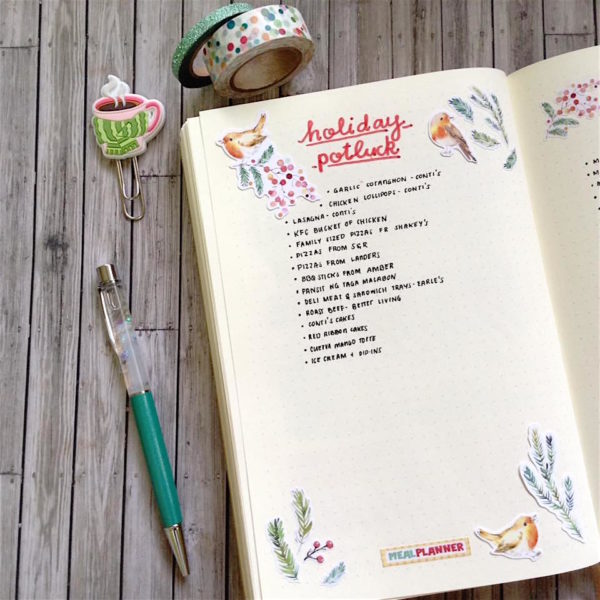 holiday
potluck
• GARLIC COTANGHON - CONTI'S
• CHICKEN LOLLIPOPS - CONTI'S
• LASAGNA - CONTI'S
• KFC BUCKET OF CHICKEN
• FAMILY SIZED PIZZAS FR SHAKEY'S
• PIZZAS FROM S&R
• PIZZAS FROM LANDERS
• BBQ STICKS FROM AMBER
• PANSIT NG TAGA MALABON
• DELI MEAT & SANDWICH TRAYS - EARLE'S
• ROAST BEEF - BETTER LIVING
• CONTI'S CAKES
• RED RIBBON CAKES
• MANGO TORTE
• ICE CREAM + DIP-INS
MEALPLANNER